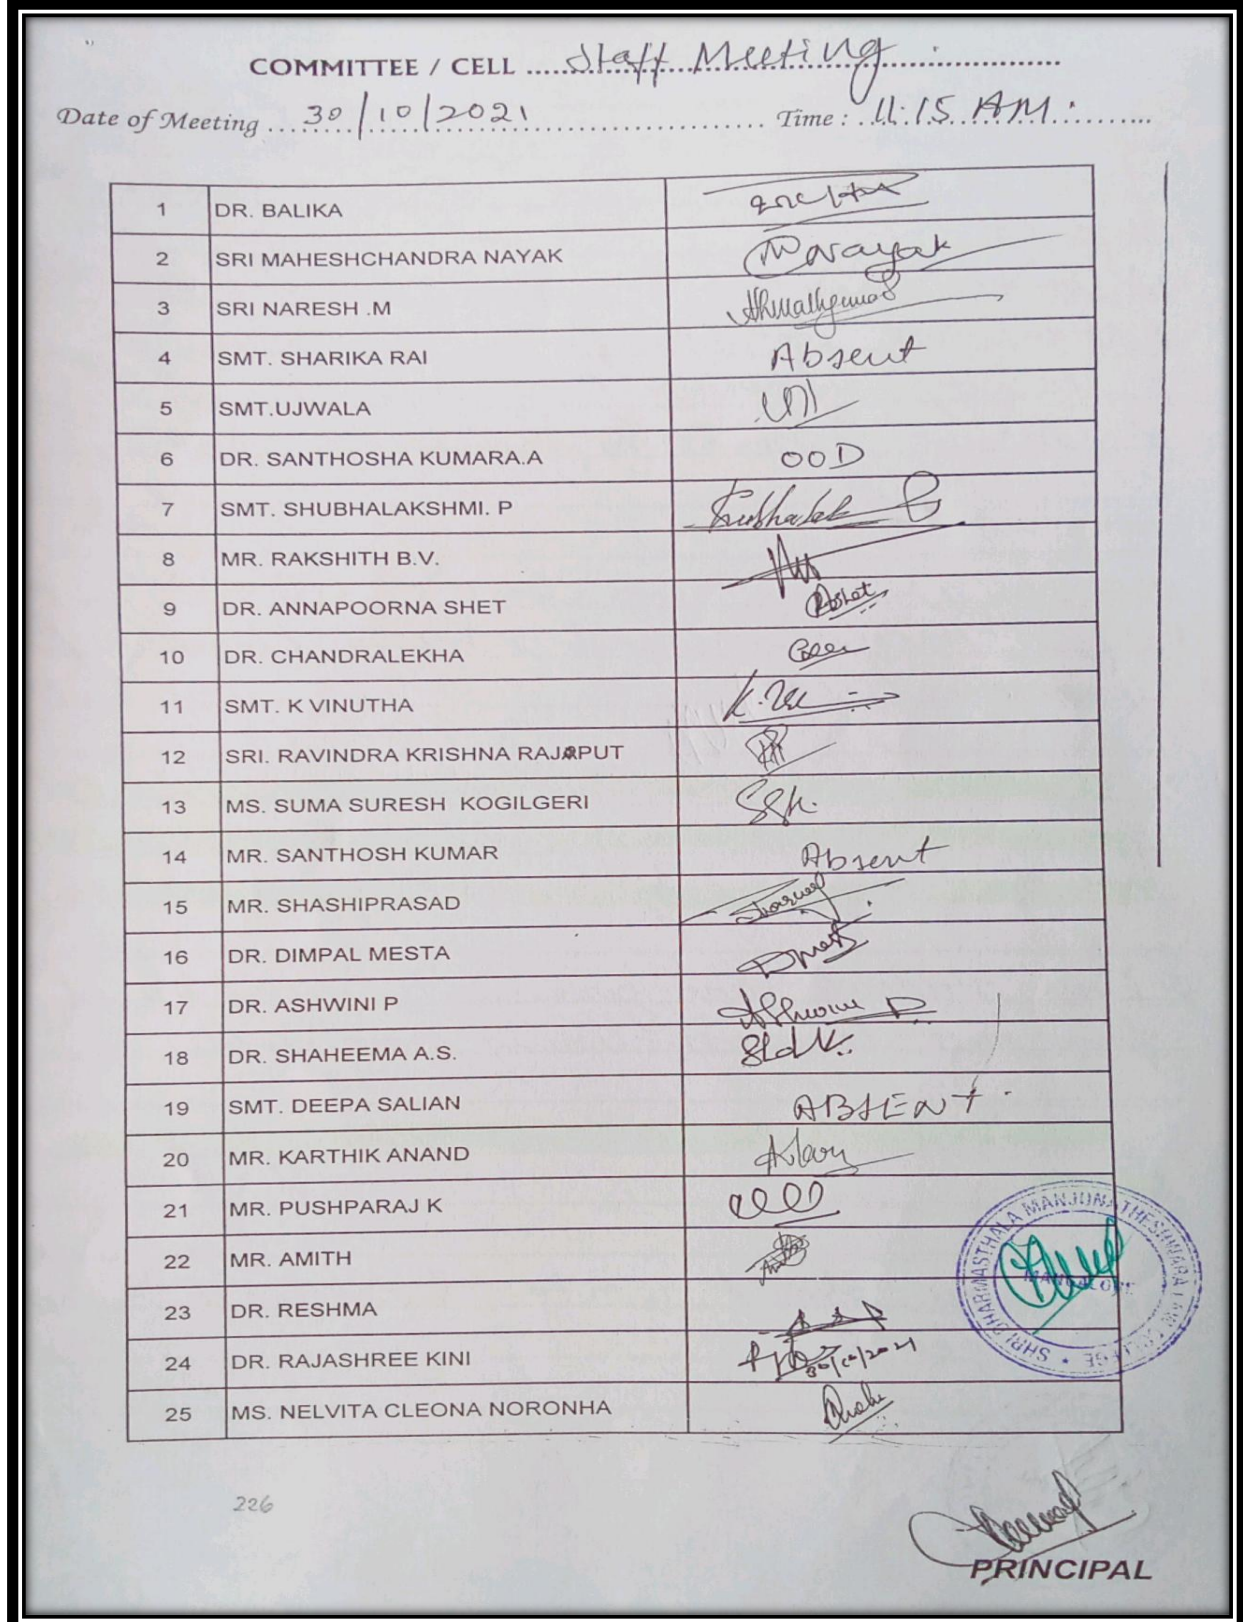 COMMITTEE / CELL ..... Staff Meeting .....
Date of Meeting ..... 30/10/2021 ..... Time : .. 11.15 AM. .....
1 DR. BALIKA
2 SRI MAHESHCHANDRA NAYAK M Nayak
3 SRI NARESH .M
4 SMT. SHARIKA RAI Absent
5 SMT.UJWALA
6 DR. SANTHOSHA KUMARA.A OOD
7 SMT. SHUBHALAKSHMI. P
8 MR. RAKSHITH B.V.
9 DR. ANNAPOORNA SHET AShet
10 DR. CHANDRALEKHA
11 SMT. K VINUTHA
12 SRI. RAVINDRA KRISHNA RAJAPUT
13 MS. SUMA SURESH KOGILGERI
14 MR. SANTHOSH KUMAR Absent
15 MR. SHASHIPRASAD
16 DR. DIMPAL MESTA
17 DR. ASHWINI P Ashwini P
18 DR. SHAHEEMA A.S.
19 SMT. DEEPA SALIAN ABSENT
20 MR. KARTHIK ANAND
21 MR. PUSHPARAJ K
22 MR. AMITH
23 DR. RESHMA
24 DR. RAJASHREE KINI 30/10/2021
25 MS. NELVITA CLEONA NORONHA
SHRI DHARMASTHALA MANJUNATHESHWARA LAW COLLEGE
MANGALORE
226
PRINCIPAL